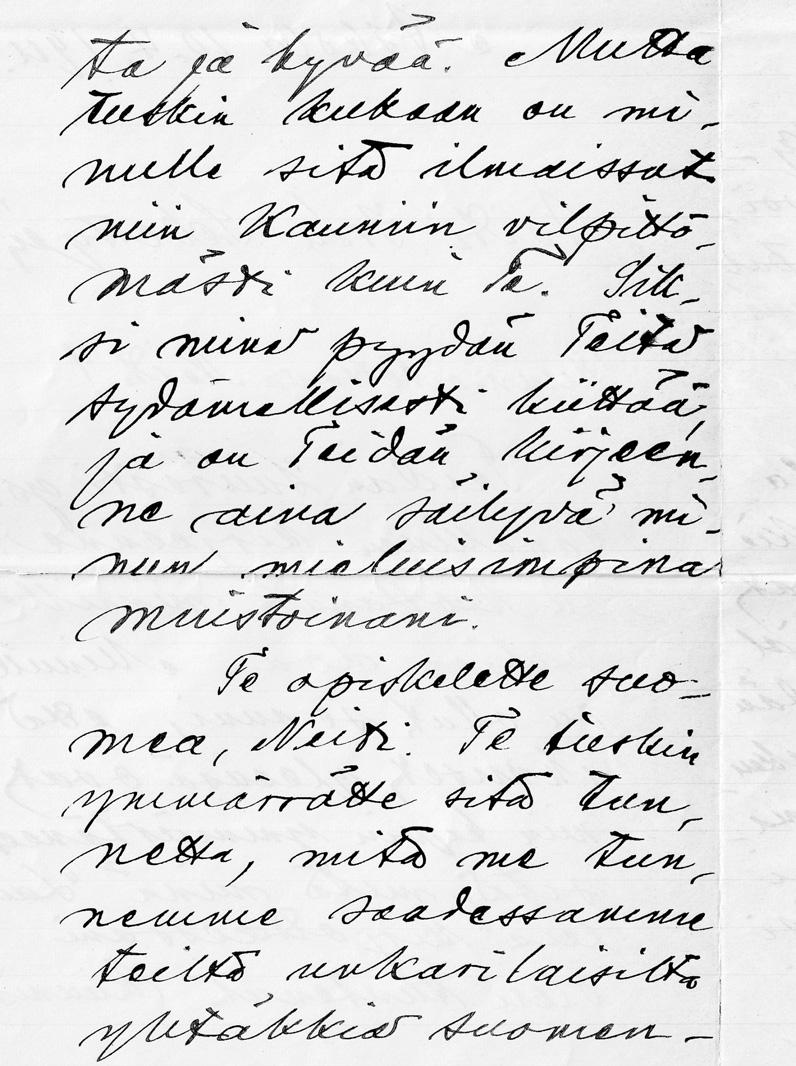 ta ja hyvää. Mutta
tuskin kukaan on mi-
nulle sitä ilmaissut
niin kauniin vilpittö-
mästi kuin Te. Sik-
si minä pyydän Teitä
sydämellisesti kiittää,
ja on Teidän kirjeen-
ne aina säilyvä mi-
nun mieluisimpina
muistoinani.
Te opiskelette suo-
mea, Neiti. Te tuskin
ymmärrätte sitä tun-
netta, mitä me tun-
nemme saadessamme
teiltä unkarilaisilta
yhtäkkiä suomen-